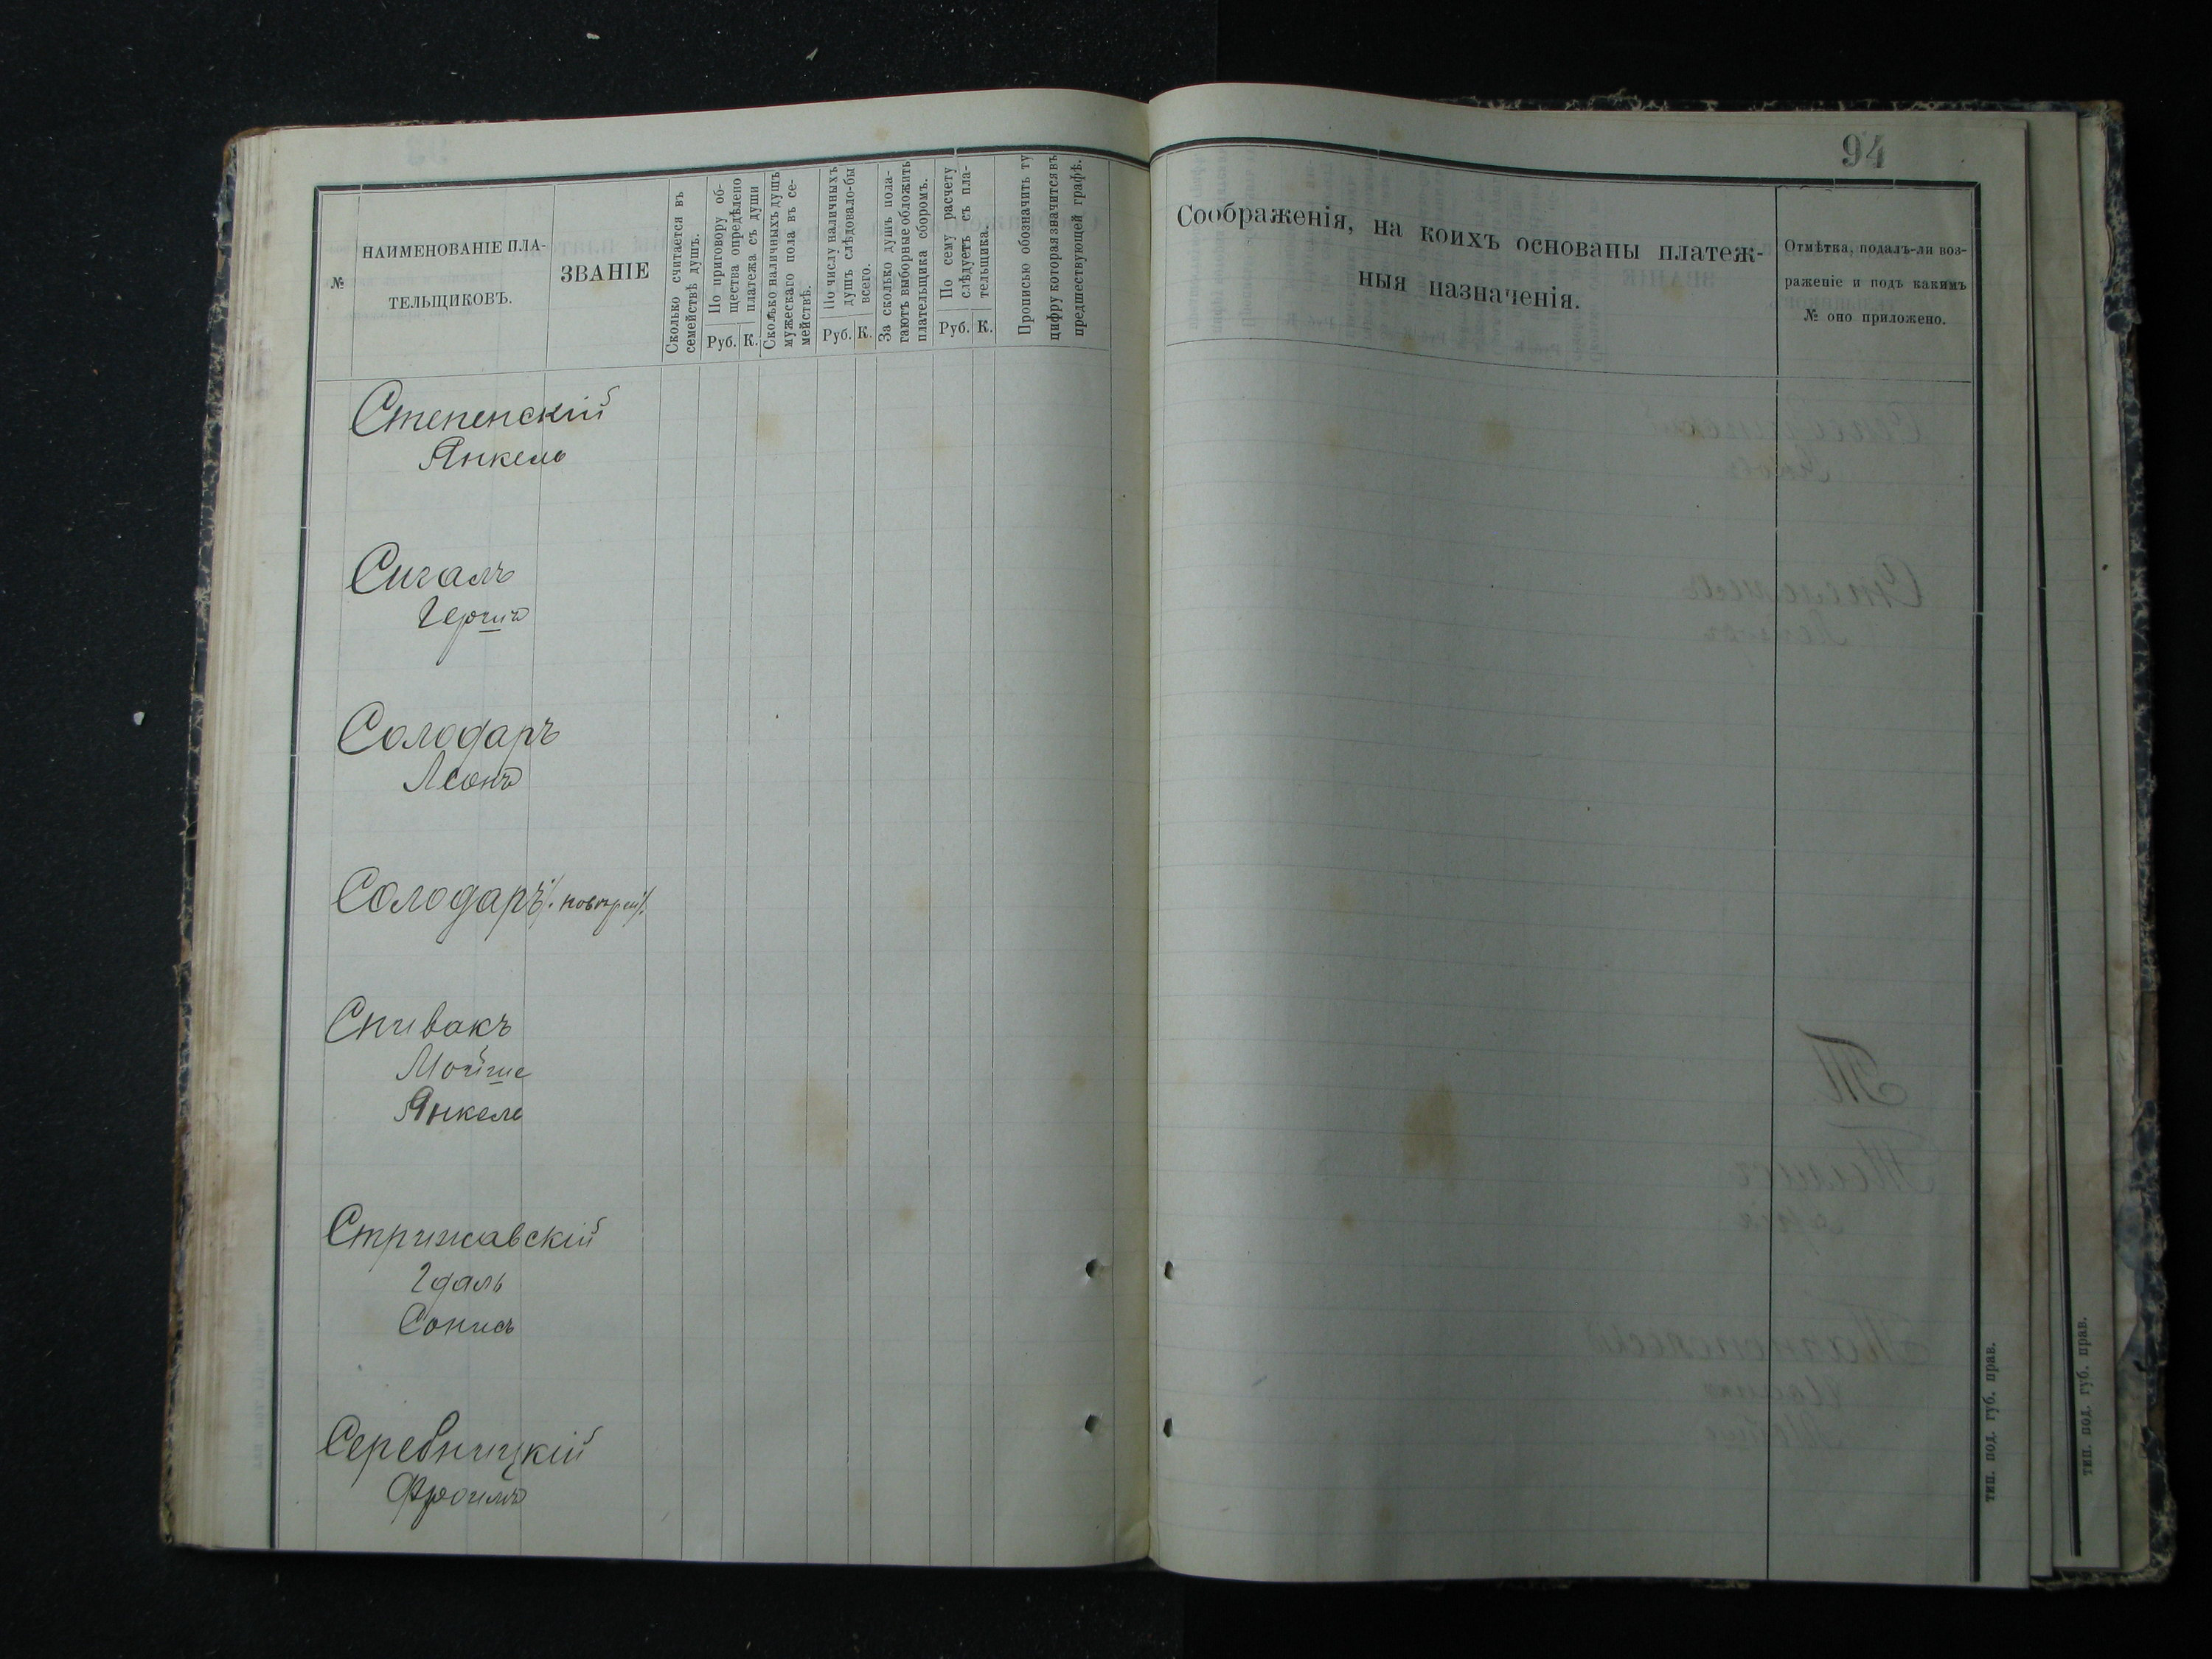 94
№
НАИМЕНОВАНІЕ ПЛА-
ТЕЛЬЩИКОВЪ.
ЗВАНІЕ
Сколько считается въ
семействѣ душъ.
По приговору об-
щества опредѣлено
платежа съ души
Руб. К.
Сколько наличныхъ душъ
мужескаго пола въ се-
мействѣ.
По числу наличныхъ
душъ слѣдовало-бы
всего.
Руб. К.
За сколько душъ пола-
гаютъ выборные обложить
плательщика сборомъ.
По сему расчету
слѣдуетъ съ пла-
тельщика.
Руб. К.
Прописью обозначить ту
цифру которая значится въ
предшествующей графѣ.
Соображенія, на коихъ основаны платеж-
ныя назначенія.
Отмѣтка, подалъ-ли воз-
раженіе и подъ какимъ
№ оно приложено.
Степенскій
Янкель
Сигалъ
Гершъ
Солодаръ
Леонъ
Солодаръ
Спивакъ
Мойше
Янкель
Стрижавскій
Гдаль
Серебницкій
Фроимъ
тип. под. губ. прав.
тип. под. губ. прав.